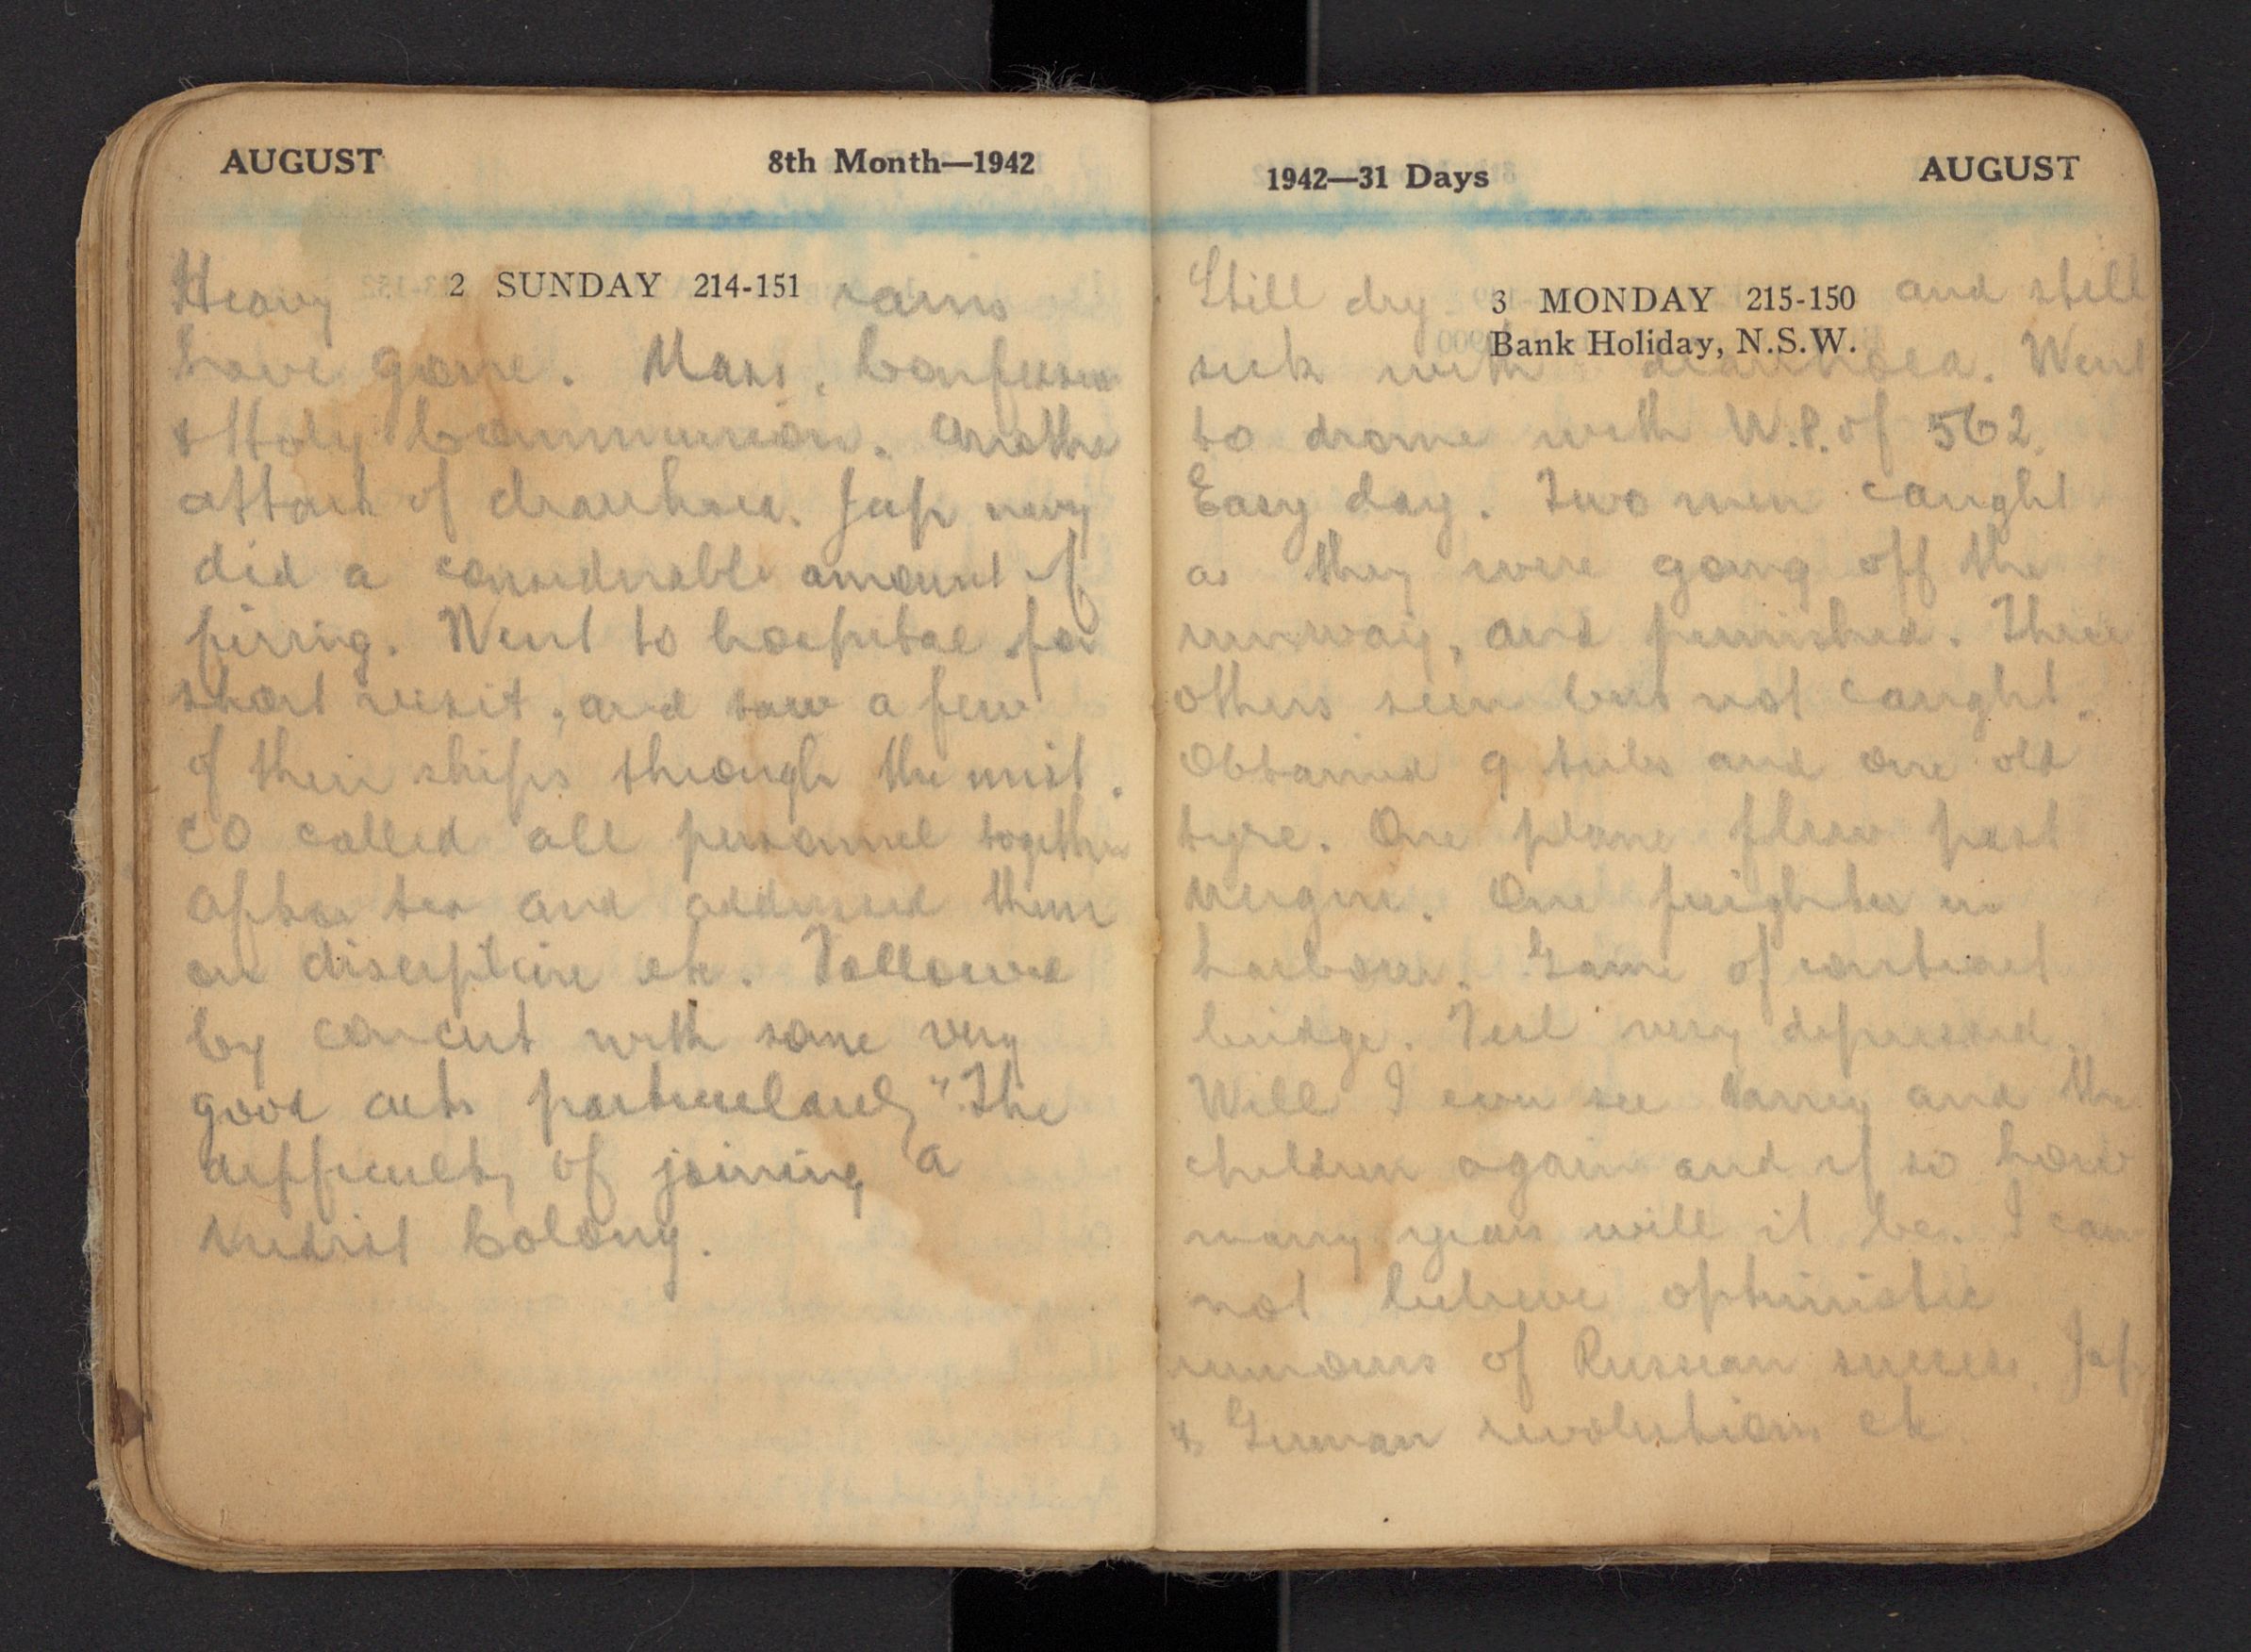 AUGUST 8th Month—1942
Heavy 2 SUNDAY 214-151 rains
have gone. Mass, Confession
& Holy Communion. Another
attack of diarrhoea. Jap navy
did a considerable amount of
firring. Went to hospital for
short visit, and saw a few
of their ships through the mist.
CO called all personnel together
after tea and addressed them
on discipline etc. Followed
by concert with some very
good acts particularly "The
difficulty of joining a
nudist Colony.
1942—31 Days AUGUST
Still dry 3 MONDAY 215-150 and still
Bank Holiday, N.S.W.
sick with diarrhoea. Went
to drome with W.P. of 562.
Easy day. Two men caught
as they were going off the
runway, and punished. Three
others seen but not caught.
Obtained 9 tubes and one old
tyre. One plane flew past
One freighter in
harbour. Game of contract
bridge. Feel very depressed.
Will I ever see and the
children again and if so how
many years will it be. I can
not believe optimistic
rumours of Russian success, Jap
& German revolutions etc